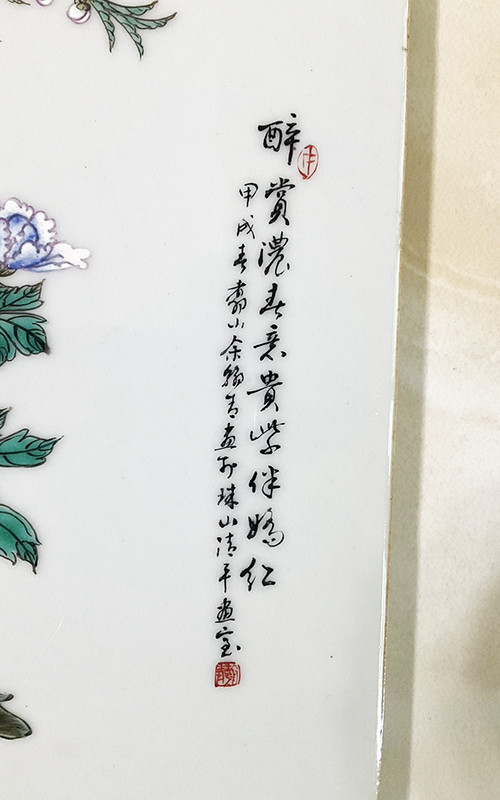 醉賞濃春意貴紫伴嬌红
甲戌春翥山余翰青畫於珠山清平畫室